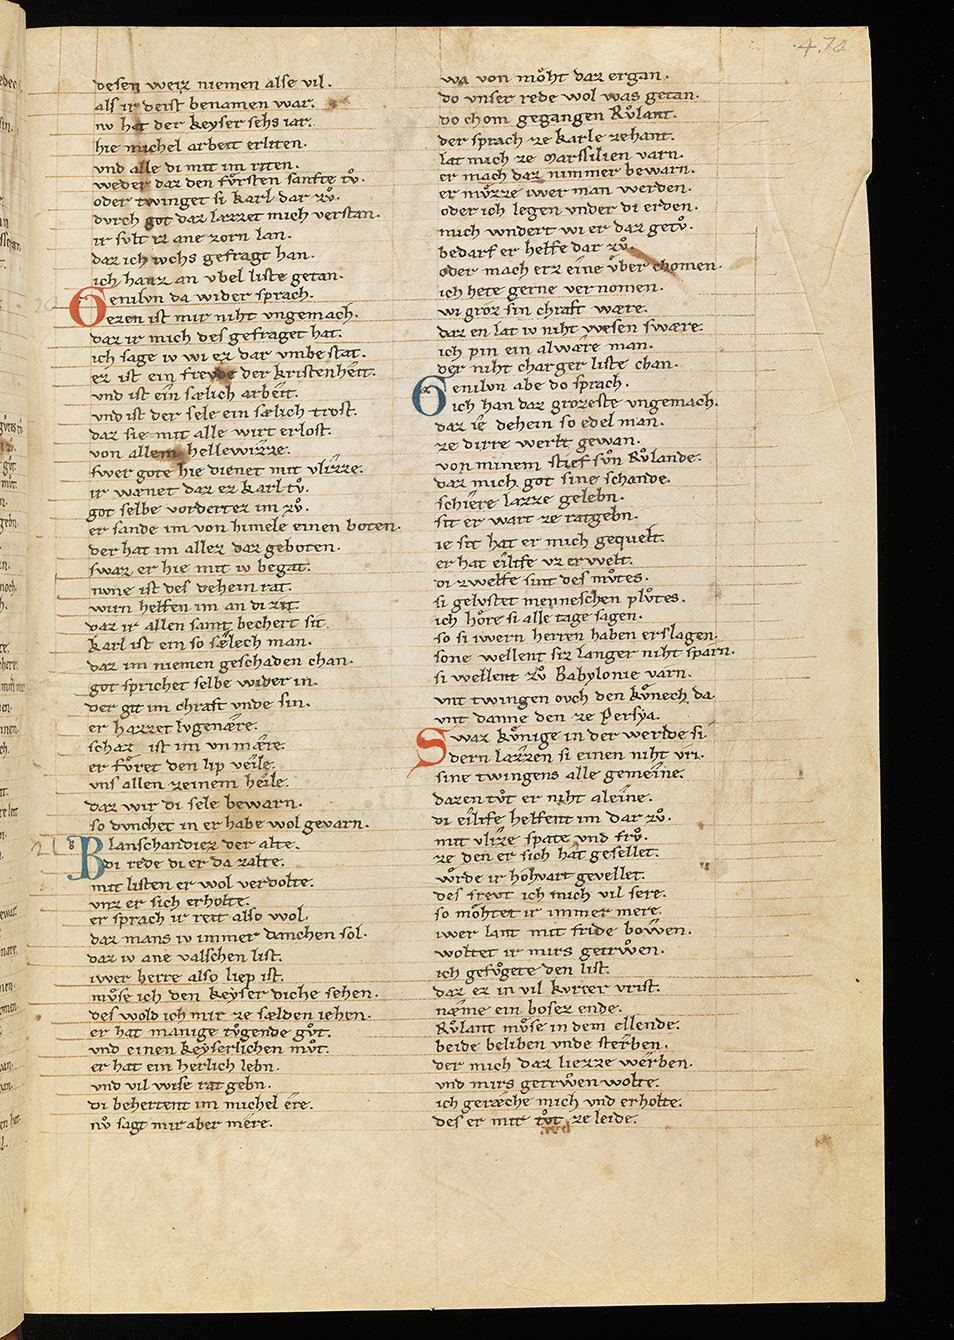 47a
desen weiz niemen alse vil.
als ir deist benamen war.
iv hat der keyser sehs iar.
hie michel arbeit erliten.
vnd alle di mit im riten.
weder daz den fůrsten sanfte tv̊.
oder twinget si karl dar zv̊.
durch got daz lazzet mich verstan.
ir svlt iz ane zorn lan.
daz ich iwchs gefragt han.
ich hanz an vbel liste getan.
Genilvn da wider sprach.
ezen ist mir niht vngemach.
daz ir mich des gefraget hat.
ich sage iv wi ez dar vmbe stat.
ez ist ein freude der kristenheit.
vnd ist ein sælich arbeit.
vnd ist der sele ein sælich trost.
daz sie mit alle wirt erlost.
von allem hellewizze.
swer gote hie dienet mit vlizze.
ir wænet daz ez karl tv̊.
got selbe vordertez im zv̊.
er sande im von himele einen boten.
der hat im allez daz geboten.
swaz er hie mit iv begat.
nune ist des dehein rat.
wirn helfen im an di zit.
daz ir allen samt bechert sit.
karl ist ein so sælech man.
daz im niemen geschaden chan.
got sprichet selbe wider in.
der git im chraft vnde sin.
er hazzet lvgenære.
schaz ist im vnmære.
er fůret den lip veile.
vns allen zeinem heile.
daz wir di sele bewarn.
so dvnchet in er habe wol gevarn.
Blanschandiez der alte.
di rede di er da zalte.
mit listen er wol verdolte.
vnz er sich erholte.
er sprach ir reit also wol.
daz mans iv immer danchen sol.
daz iv ane valschen list.
iwer herre also liep ist.
můse ich den keyser diche sehen.
des wold ich mir ze sælden iehen.
er hat manige tůgende gůt.
vnd einen keyserlichen můt.
er hat ein herlich lebn.
vnd vil wise ratgebn.
di behertent im michel ere.
nv̊ sagt mir aber mere.
wa von möht daz ergan.
do vnser rede wol was getan.
do chom gegangen Rv̊lant.
der sprach ze karle zehant.
lat mich ze Marssilien varn.
er mach daz nimmer bewarn.
er můzze iwer man werden.
oder ich legen vnder di erden.
mich wndert wi er daz getv̊.
bedarf er helfe dar zv̊.
oder mach erz eine vber chomen.
ich hete gerne vernomen.
wi groz sin chraft wære.
daz en lat iv niht wesen swære.
ich pin ein alwære man.
der niht charger liste chan.
Genilvn abe do sprach.
ich han daz grozeste vngemach.
daz ie dehein so edel man.
ze dirre werlt gewan.
von minem stief svn Rv̊lande.
daz mich got sine schande.
schiere lazze gelebn.
sit er wart ze ratgebn.
ie sit hat er mich gequelt.
er hat eilife vz erwelt.
di zwelfe sint des můtes.
si gelvstet menneschen plůtes.
ich hőre si alle tage sagen.
so si iwern herren haben erslagen.
sone wellent siz langer niht sparn.
si wellent zv̊ Babylonie varn.
vnt twingen ovch den kv̊nech da.
vnt danne den ze Persya.
Swaz kv̊nige in der werlde si.
dern lazzen si einen niht vri.
sine twingens alle gemeine.
dazen tv̊t er niht aleine.
di eilife helfent im dar zv̊.
mit vlize spate vnd frv̊.
ze den er sich hat gesellet.
wrde ir hohvart gevellet.
des frevt ich mich vil sere.
so möhtet ir immer mere.
iwer lant mit fride bowen.
woltet ir mirs getrwen.
ich gefůgete den list.
daz ez in vil kvrzer vrist.
næme ein bosez ende.
Rv̊lant můse in dem ellende.
beide beliben vnde sterben.
der mich daz liezze werben.
vnd mirs getrwen wolte.
ich geræche mich vnd erholte.
des er mir tv̊t ze leide.